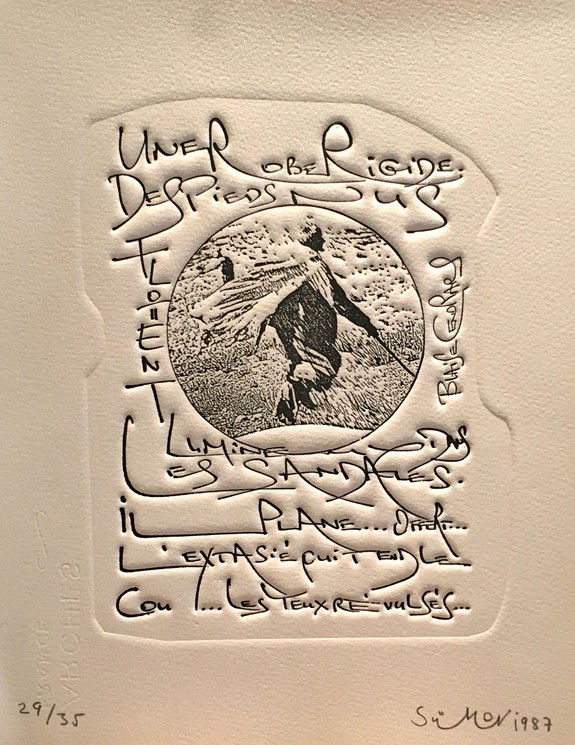 UNE ROBE RIGIDE.
DES PIEDS NUS
FLOTTENT
BLAISE CENDRARS
ILLUMINE DANS
LES SANDALES.
IL PLANE.... OFFERT...
L'EXTASIÉ QUI TEND LE
COU !... LES YEUX RÉVULSÉS...
ARCHES
29/35
1987